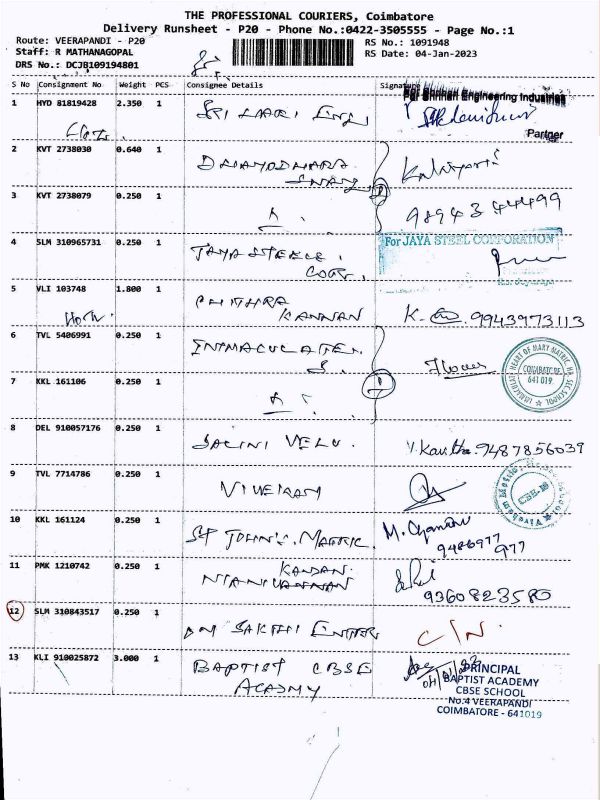 THE PROFESSIONAL COURIERS, Coimbatore
Delivery Runsheet - P20 - Phone No.:0422-3505555 - Page No.:1
Route: VEERAPANDI - P20
Staff: R MATHANAGOPAL
DRS No.: DCJB109194801
RS No.: 1091948
RS Date: 04-Jan-2023
S No Consignment No Weight PCS Consignee Details Signature
For Shrihari Engineering Industries
1 HYD 81819428 2.350 1 SRI HARI ENG
Partner
2 KVT 2738030 0.640 1 DHAYODHARA
3 KVT 2738079 0.250 1 98943 44499
4 SLM 310965731 0.250 1 JAYA STEELE
CORP.
For JAYA STEEL CORPORATION
5 VLI 103748 1.800 1 CHITHRA
KANNAN K. 9943973113
6 TVL 5406991 0.250 1 INMACULATE
S.
IMMACULATE HEART OF MARY MATRIC. HR. SEC SCHOOL
COIMBATORE
641 019
7 KKL 161106 0.250 1
8 DEL 910057176 0.250 1 SALINI VELU. V. Kavitha. 9487856039
9 TVL 7714786 0.250 1 VIVEKAM
CBSE
10 KKL 161124 0.250 1 ST JOHN'S. MATRIC. M. Chandru
9486977
977
11 PMK 1210742 0.250 1 KANDAN.
MANIVANNAN
9360823580
12 SLM 310843517 0.250 1 OM SAKTHI ENTER C/N.
13 KLI 910025872 3.000 1 BAPTIST CBSE
ACADMY
PRINCIPAL
BAPTIST ACADEMY
CBSE SCHOOL
No:4 VEERAPANDI
COIMBATORE - 641019